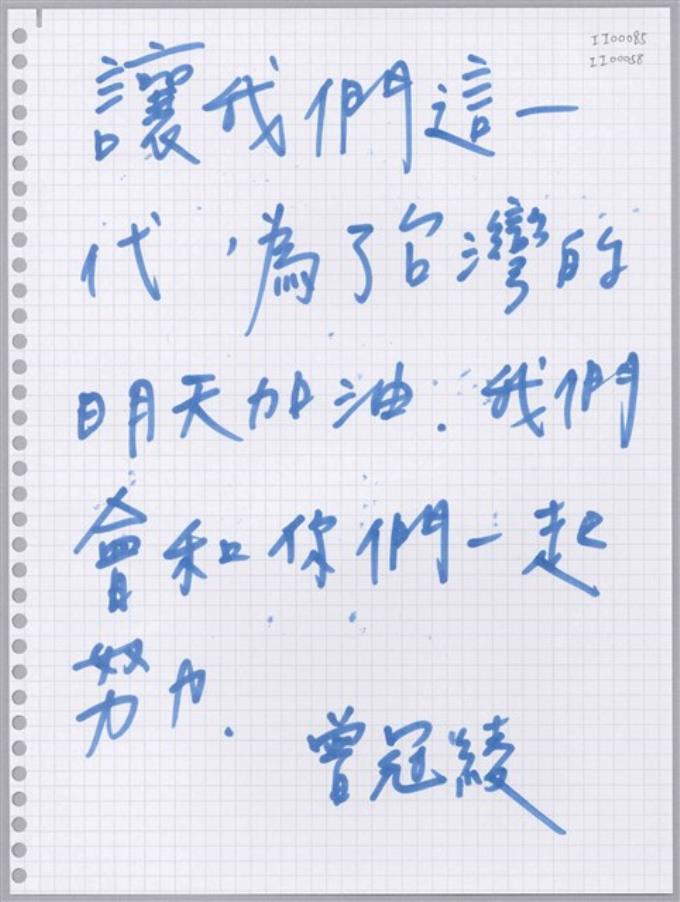 II00085
II00058
讓我們這一
代,為了台灣的
明天加油.我們
會和你們一起
努力.
曾冠綾